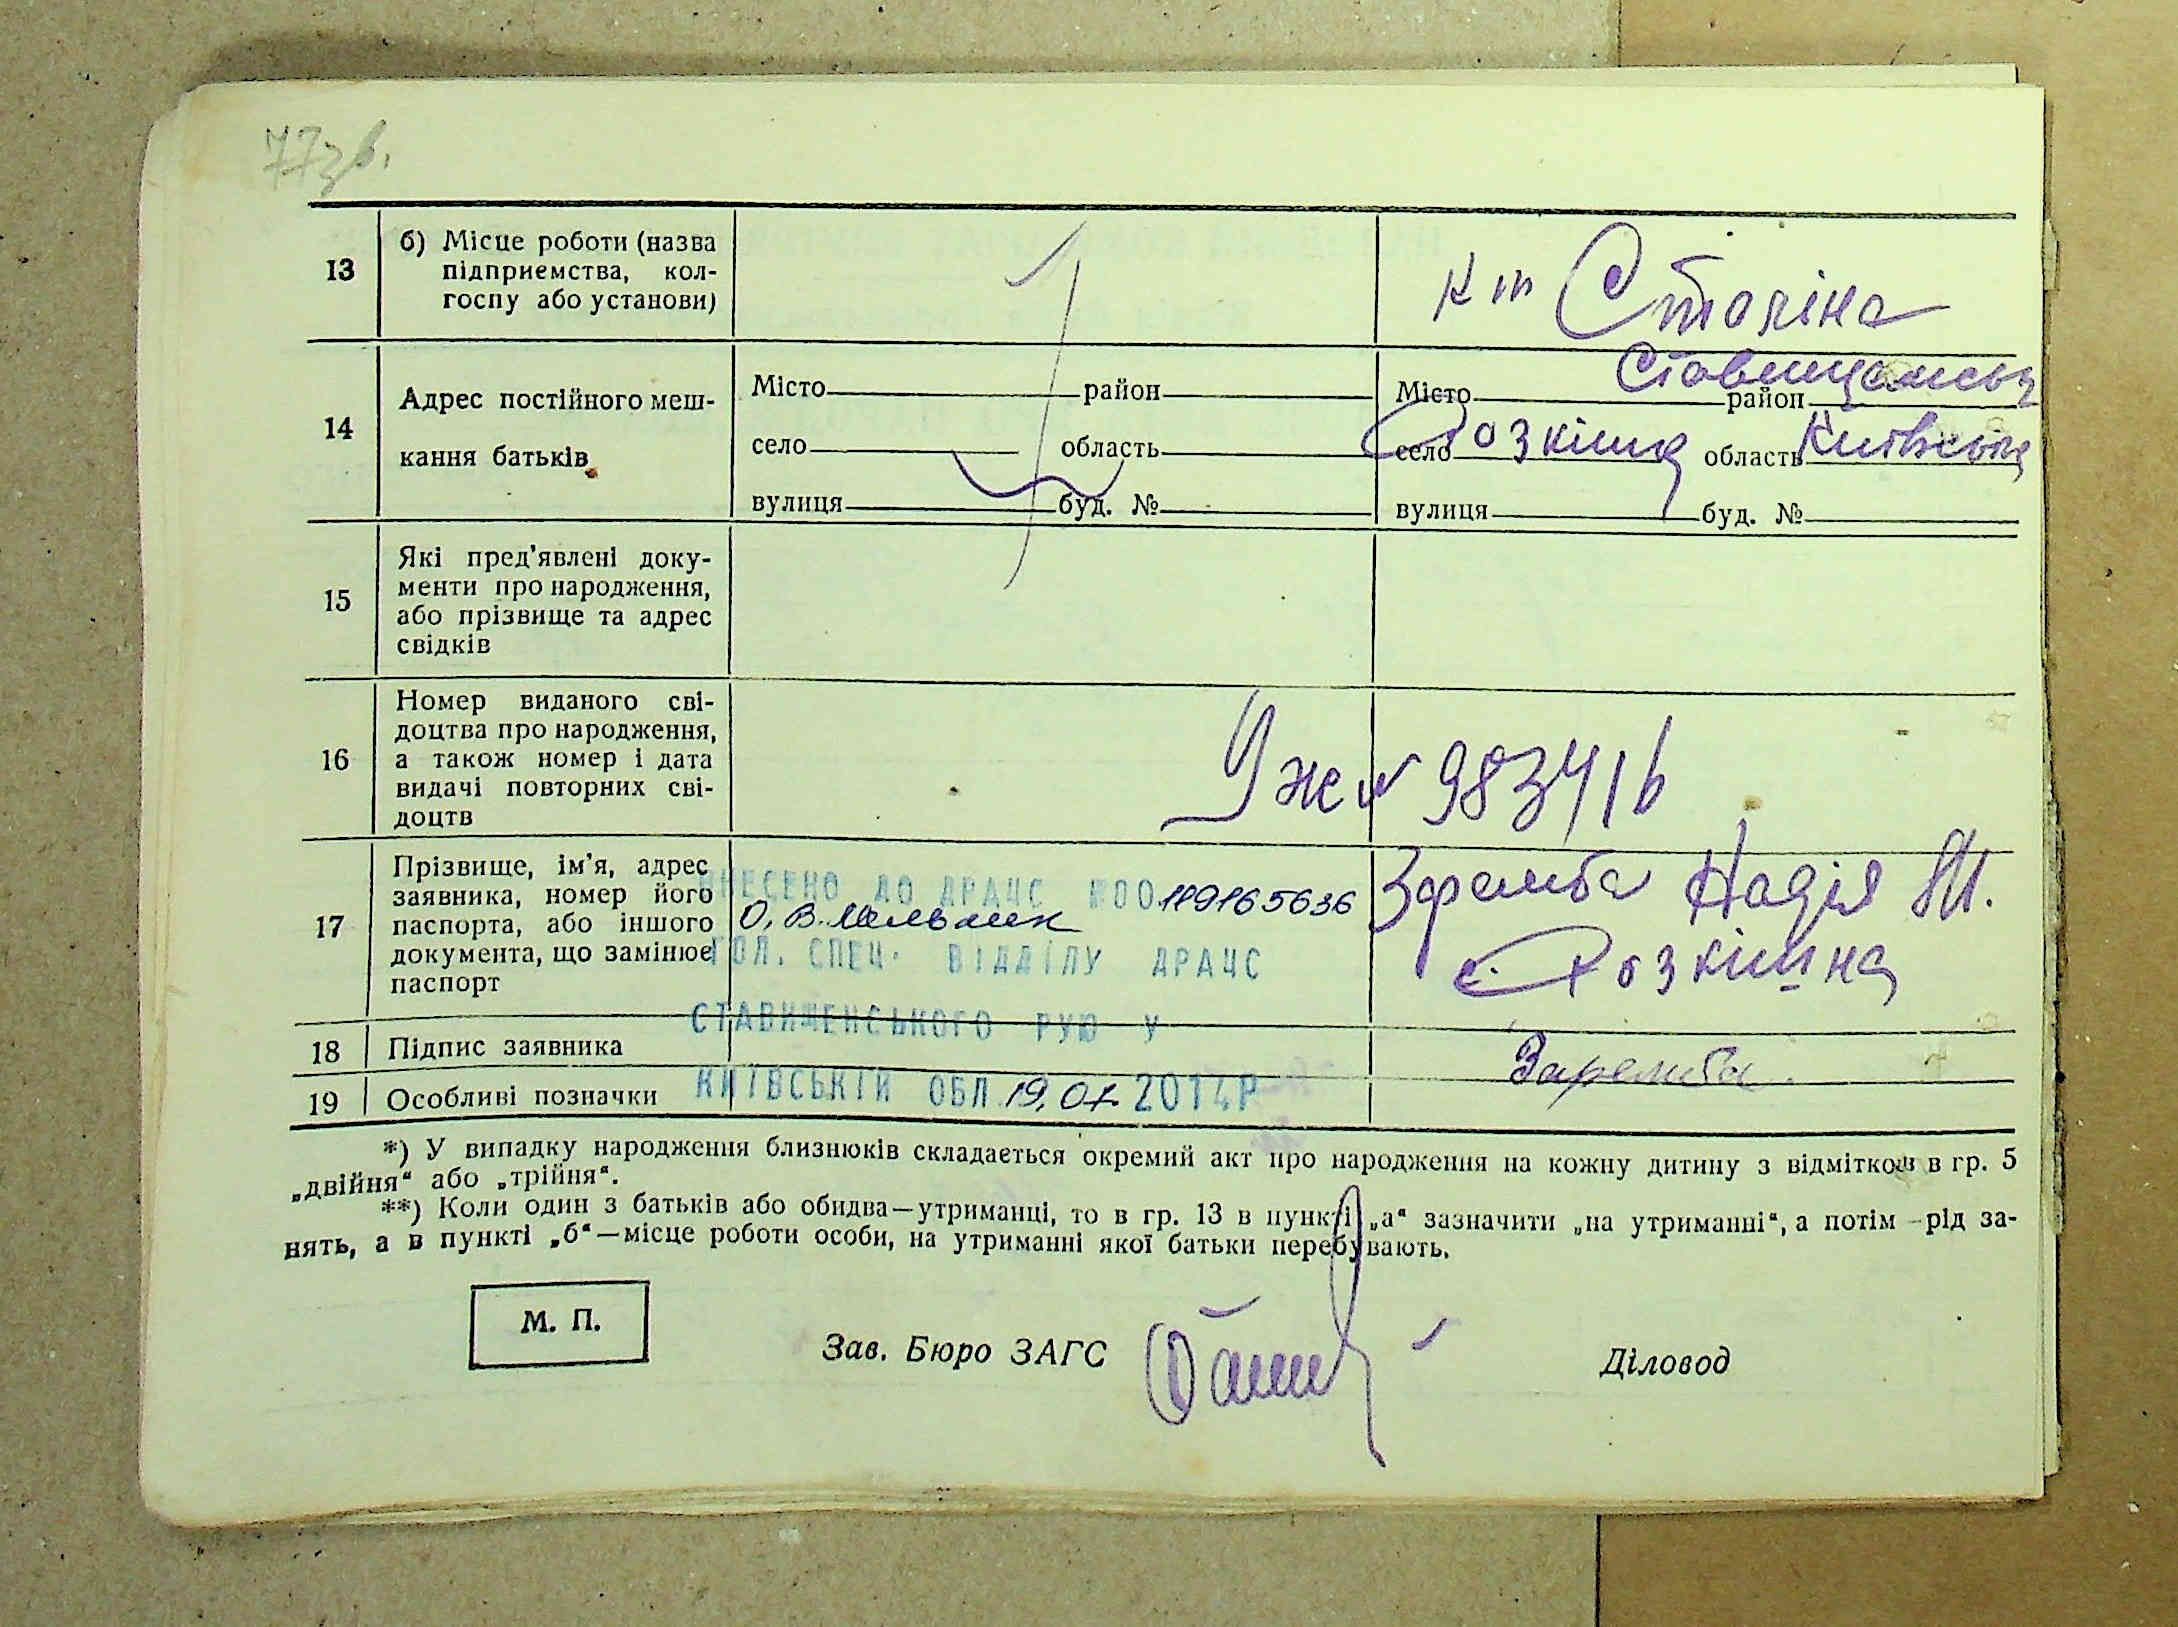 77зв.
13
б) Місце роботи (назва
підприємства, кол-
госпу або установи)
к-п Сталіна
14
Адрес постійного меш-
кання батьків
Місто район
село область
вулиця буд. №
Місто район Ставищанськ
село Розкішна область Київська
вулиця буд. №
15
Які пред'явлені доку-
менти про народження,
або прізвище та адрес
свідків
16
Номер виданого сві-
доцтва про народження,
а також номер і дата
видачі повторних сві-
доцтв
№ 983416
17
Прізвище, ім'я, адрес
заявника, номер його
паспорта, або іншого
документа, що замінює
паспорт
ВНЕСЕНО ДО ДРАЦС №00119165636
О. В. Мельник
ГОЛ. СПЕЦ. ВІДДІЛУ ДРАЦС
СТАВИЩЕНСЬКОГО РУЮ У
КИЇВСЬКІЙ ОБЛ. 19.07.2014Р
Заремба Надія
с. Розкішна
18
Підпис заявника
Заремба
19
Особливі позначки
*) У випадку народження близнюків складається окремий акт про народження на кожну дитину з відміткою в гр. 5
„двійня“ або „трійня“.
**) Коли один з батьків або обидва—утриманці, то в гр. 13 в пункті „а“ зазначити „на утриманні“, а потім—рід за-
нять, а в пункті „б“—місце роботи особи, на утриманні якої батьки перебувають.
М. П.
Зав. Бюро ЗАГС
Діловод